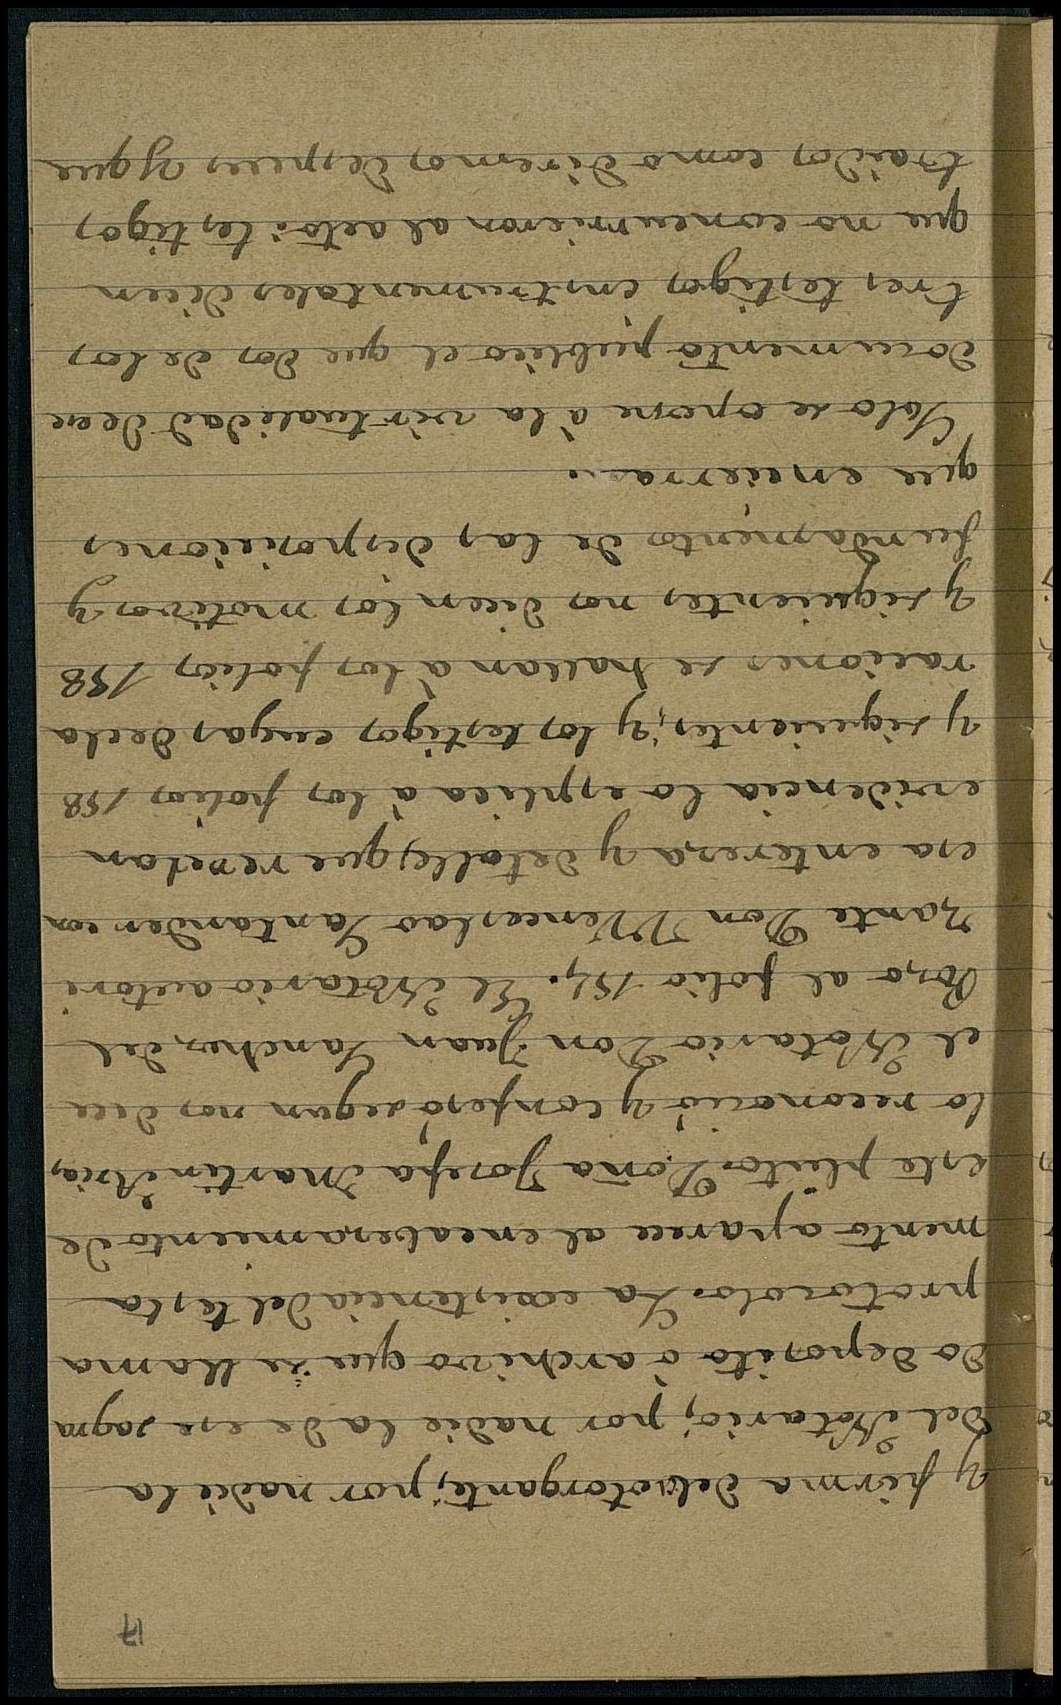 17
y firma del otorgante; por nadie la
del Notario; por nadie la de ese sagra
do deposito ò archivo que se llama
protocolo. La existencia del testa
mento aparece al encabezamiento de
este pleito. Doña Josefa Martin Arias,
lo reconoció y confesó segun nos dice
el Notario Don Juan Sanchez del
Pozo al folio 154. El Notario autori
zante Don Wenceslao Santander con
esa entereza y detalle, que revelan
evidencia lo esplica à los folios 158
y siguientes; y los testigos cuyas decla
raciones se hallan à los folios 198
y siguientes nos dicen los motivos y
fundamentos de las disposiciones
que encierra.
Solo se opone à la virtualidad de ese
documento público el que dos de los
tres testigos instrumentales dicen
que no concurrieron al acto: testigos
traidos como diremos despues y que